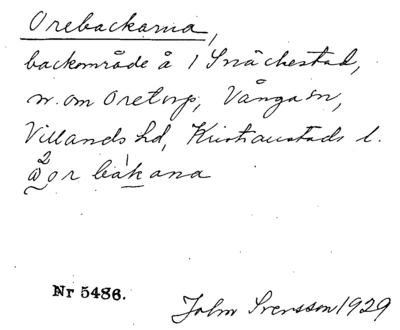 Orebackarna,
backområde å 1 Snäckestad,
n. om Oretorp, Vånga sn,
Villands hd, Kristianstads l.
bakana
Nr 5486.
John Svensson 1929